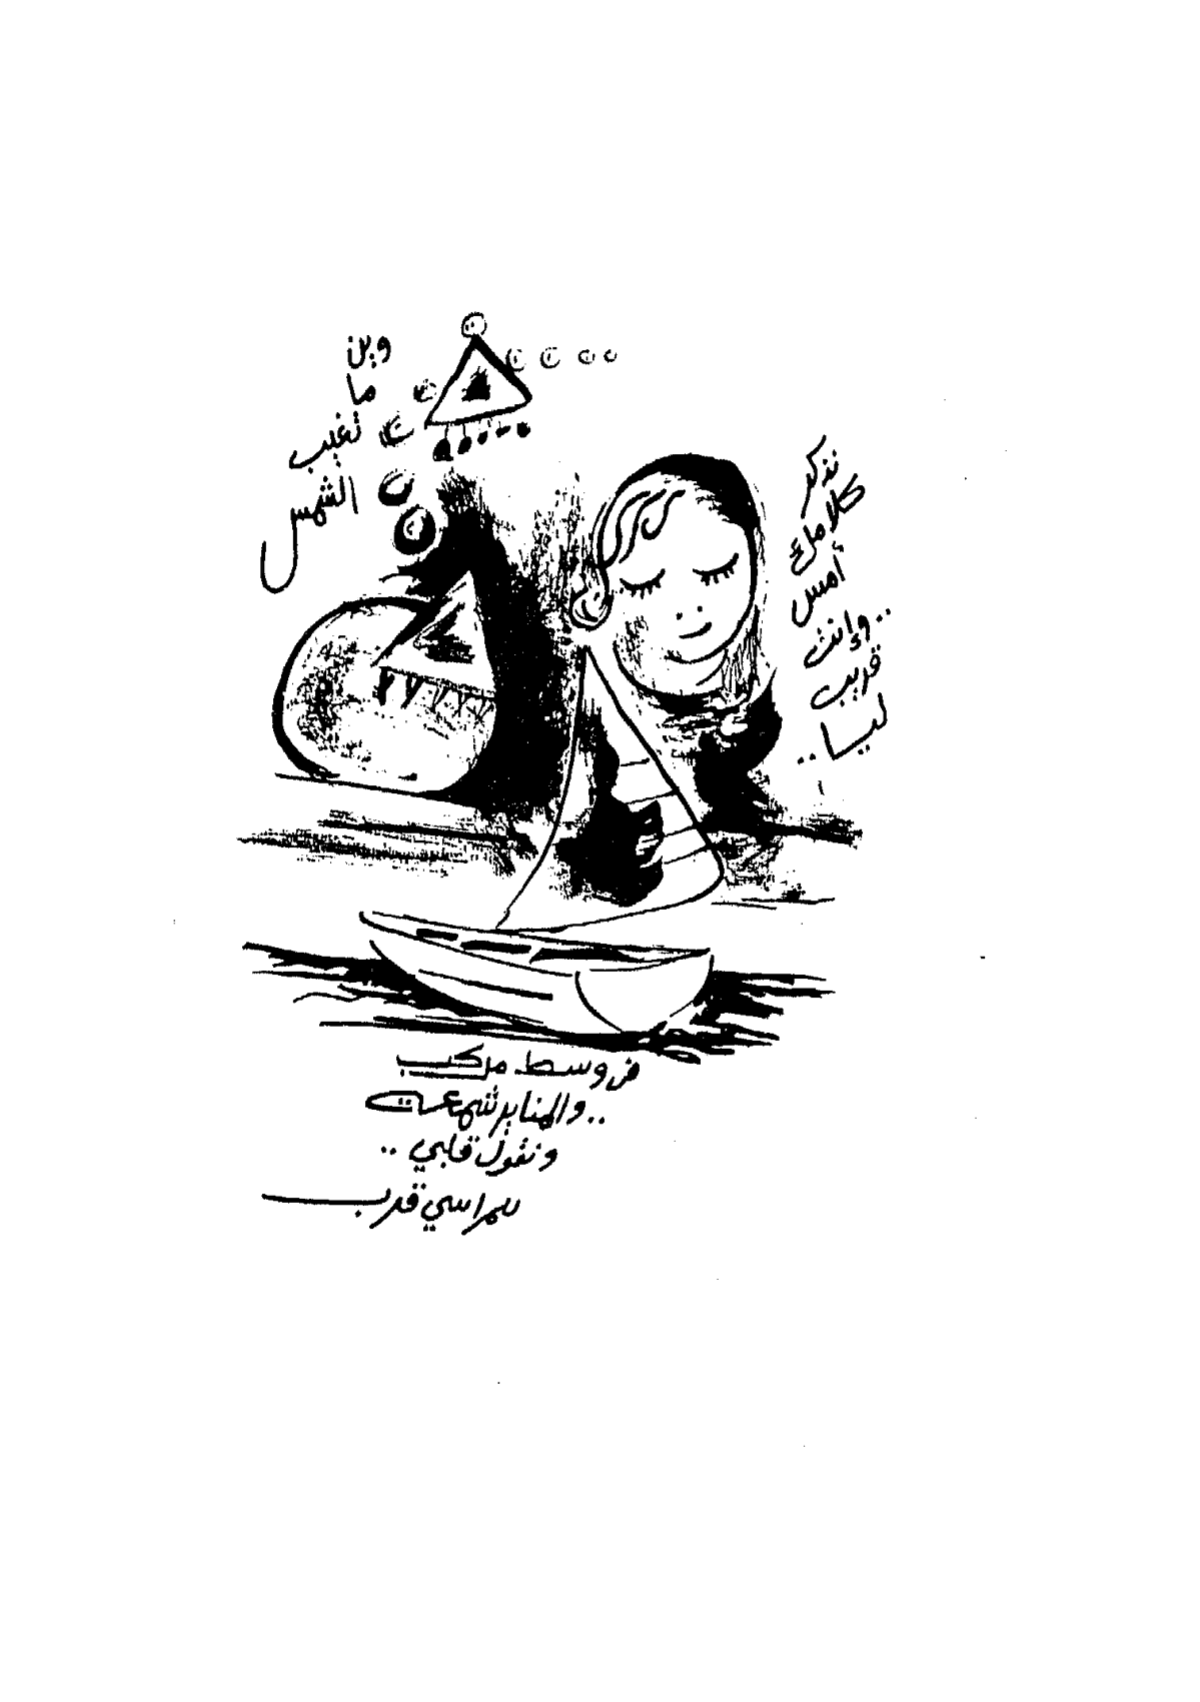 وين
ما
تغيب
الشمس
نذكر
كلامك
أمس
..وإنت
قريب
ليا..
في وسط مركب
..والمنابر شمعت
ونقول قلبي..
للمراسي قرب